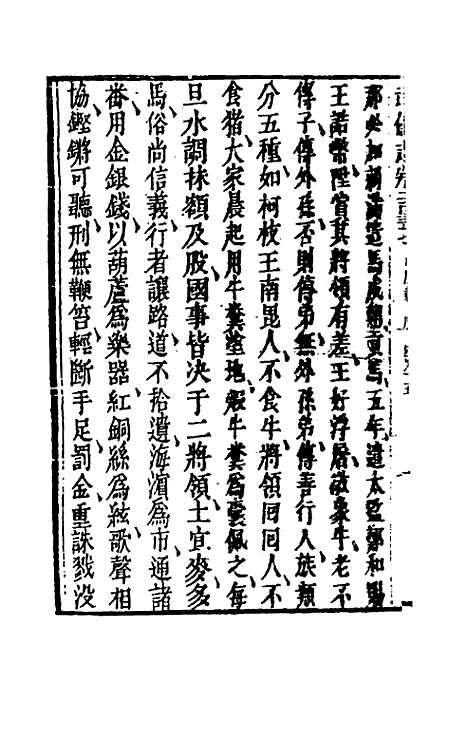 王誥幣陞賞其將領有差王好浮屠敬象牛老不
傳子傳外孫否則傳弟無外孫弟傳善行人族類
分五種如柯枝王南毘人不食牛將領囘囘人不
食猪大家晨起用牛糞塗地煅牛糞爲囊佩之每
旦水調抹額及股國事皆决于二將領土宜麥多
馬俗尚信義行者讓路道不拾遺海濵爲市通諸
番用金銀錢以葫蘆爲樂器紅銅絲爲絃歌聲相
協鏗鏘可聽刑無鞭笞輕斷手足罰金重誅戮没